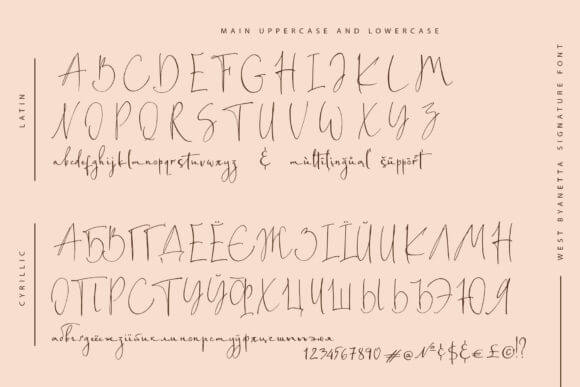 MAIN UPPERCASE AND LOWERCASE
LATIN
ABCDEFGHIJKLM
NOPQRSTUVWXYZ
abcdefghijklmnopqrstuvwxyz & mùltilingüal šüppört
CYRILLIC
АБВГҐДЕЁЄЖЗІЇЙИКЛМН
ОПРСТУЎФХЦЧШЫЬЪЭЮЯ
1234567890 #@№&$&€£©!?
WEST BYANETTA SIGNATURE FONT